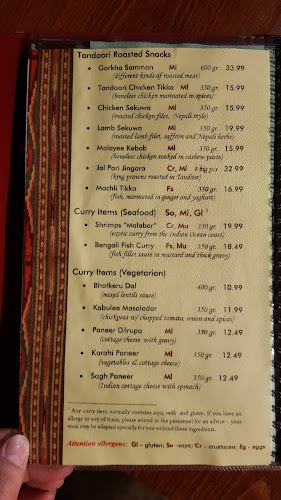 Tandoori Roasted Snacks
• Gorkha Samman Mi 600 gr. 33.99
(different kinds of roasted meat)
• Tandoori Chicken Tikka Mi 350 gr. 15.99
(boneless chicken marinated in spices)
• Chicken Sekuwa Mi 350 gr. 15.99
(roasted chicken filet, Nepali style)
• Lamb Sekuwa Mi 350 gr. 19.99
(roasted lamb filet, saffron and Nepali herbs)
• Malayee Kebab Mi 350 gr. 15.99
(boneless chicken cooked in cashew paste)
• Jal Pari Jingara Cr, Mi 4 big pcs 32.99
(king prawns roasted in Tandoor)
• Machli Tikka Fs 350 gr. 16.99
(fish, marinated in ginger and yoghurt)
Curry Items (Seafood) So, Mi, Gl
• Shrimps "Malabar" Cr, Mu 350 gr. 19.99
(exotic curry from the Indian Ocean coast)
• Bengali Fish Curry Fs, Mu 350 gr. 18.49
(fish fillet sauté in mustard and thick gravy)
Curry Items (Vegetarian)
• Bhatkeru Dal 400 gr. 10.99
(mixed lentils sauce)
• Kabulee Masaladar 350 gr. 11.99
(chickpeas w/ chopped tomato, onion and spices)
• Paneer Dilrupa Mi 350 gr. 12.49
(cottage cheese with gravy)
• Karahi Paneer Mi 350 gr. 12.49
(vegetables & cottage cheese)
• Sagh Paneer Mi 350 gr. 12.49
(Indian cottage cheese with spinach)
Any curry item normally contains soya, milk and gluten. If you have an
allergy to any of these, please attend to the personnel for an advice – your
meal may be adapted specially for you without these ingredients.
Attention allergens: Gl – gluten; So –soya; Cr – crustacea; Eg - eggs